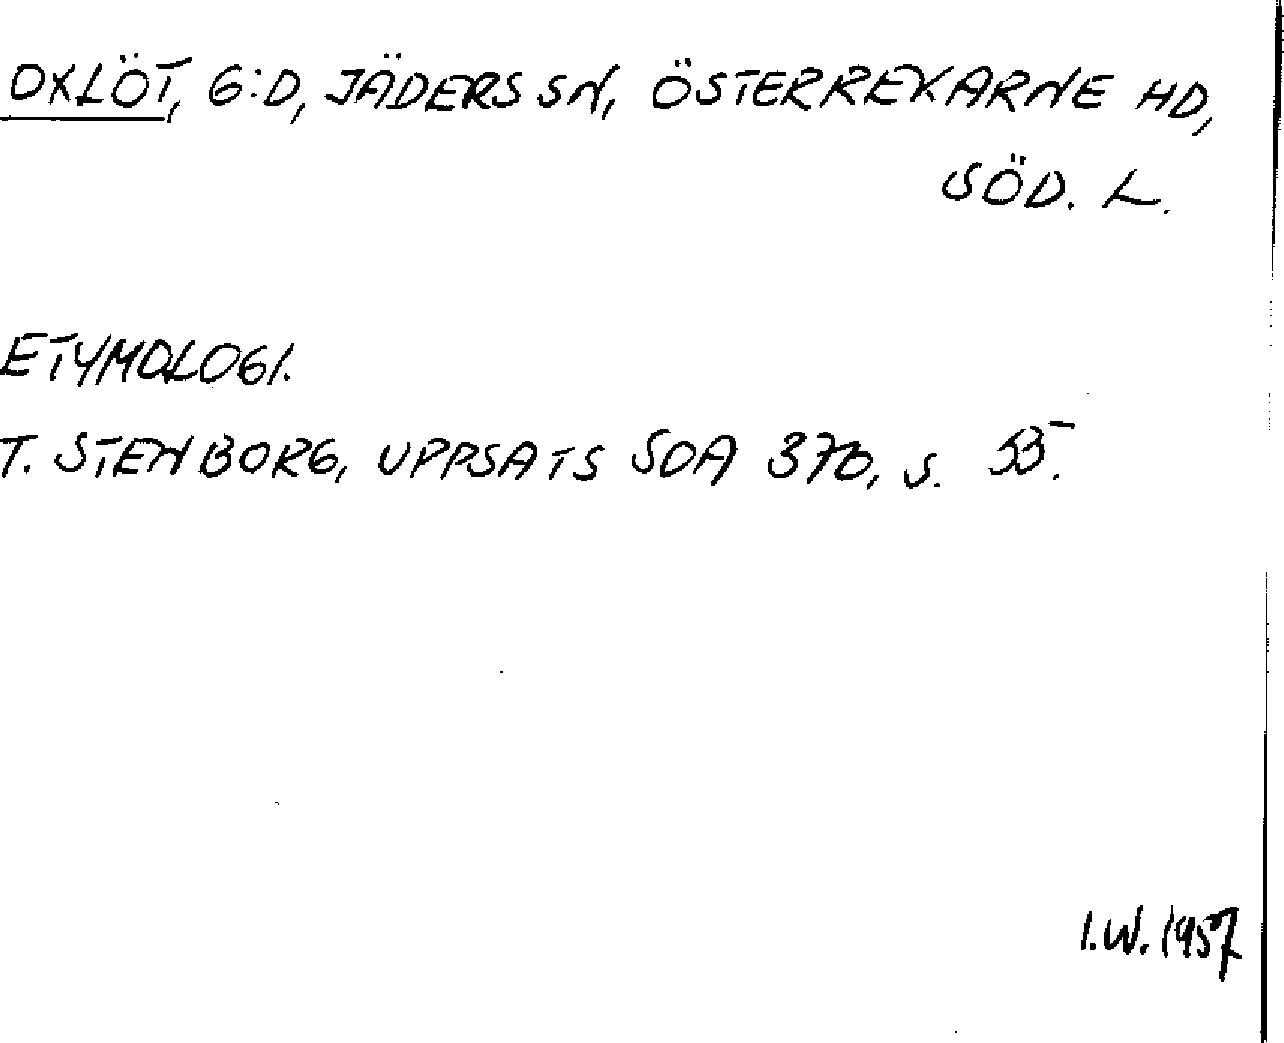 OXLÖT, G:D, JÄDERS SN, ÖSTERREKARNE HD,
SÖD. L.
ETYMOLOGI.
T. STENBORG, UPPSATS SOA 370, S. 55.
I.W. 1957